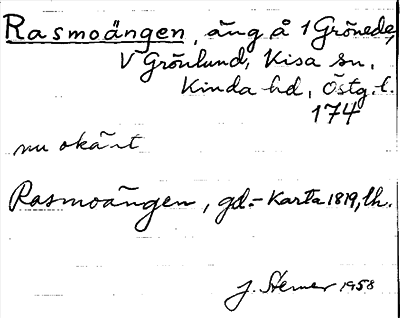 Rasmoängen, äng å 1 Grönede,
V Grönlund, Kisa sn,
Kinda hd, Östg. l.
174
nu okänt
Rasmoängen, gd. - Karta 1819, lh.
J. Sterner 1958